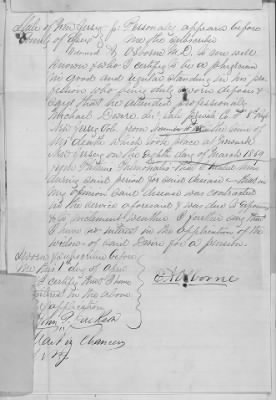 State of New Jersey } ss. Personally appears before
County of Essex } me the subscriber
Edmund Osborne M.D. to me well
known & who I certify to be a physician
in good and regular standing in his pro
fession who being duly sworn deposes &
says that he attended professionally
Michael Doare dec. late private Co F 8th Regt
New Jersey Vols. from to the time of
his death which took place at Newark
New Jersey on the eighth day of March 1869
from I treated him
during said period for said disease & that in
my opinion said disease was contracted
in the service aforesaid & was due to exposure
to inclement weather I further say that
I have no interest in the application of the
widow of said Doare for a pension.
Sworn & subscribed before
me this 1st day of April
I certify that I have
no interest in the above
application
E A Osborne
John P. Jackson
Master in Chancery
of N J